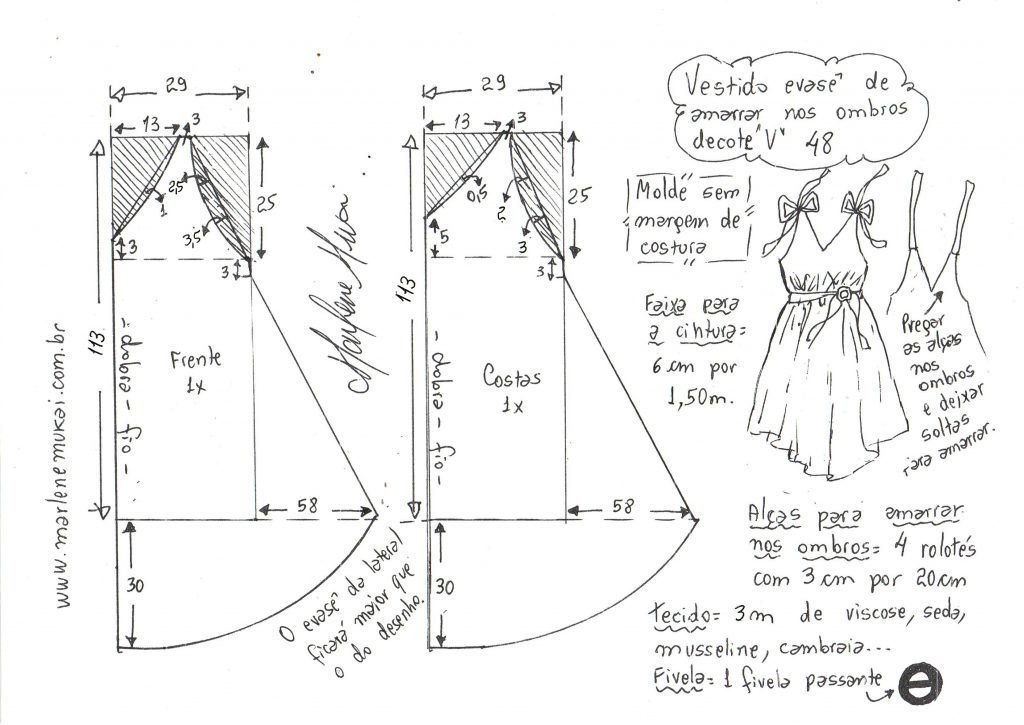 29
13
3
2,5
1
3,5
25
3
3
113
- dobra - fio -
Frente
1x
58
30
www.marlenemukai.com.br
Marlene Mukai
29
13
3
0,5
2
3
25
5
3
113
- dobra - fio -
Costas
1x
58
30
O evasê da lateral
ficará maior que
o do desenho.
Vestido evasê de
amarrar nos ombros
decote "V" 48
Molde sem
margem de
costura
Faixa para
a cintura=
6 cm por
1,50m.
Pregar
as alças
nos
ombros
e deixar
soltas
para amarrar.
Alças para amarrar
nos ombros= 4 rolotés
com 3 cm por 20cm
Tecido= 3m de viscose, seda,
musseline, cambraia...
Fivela= 1 fivela passante